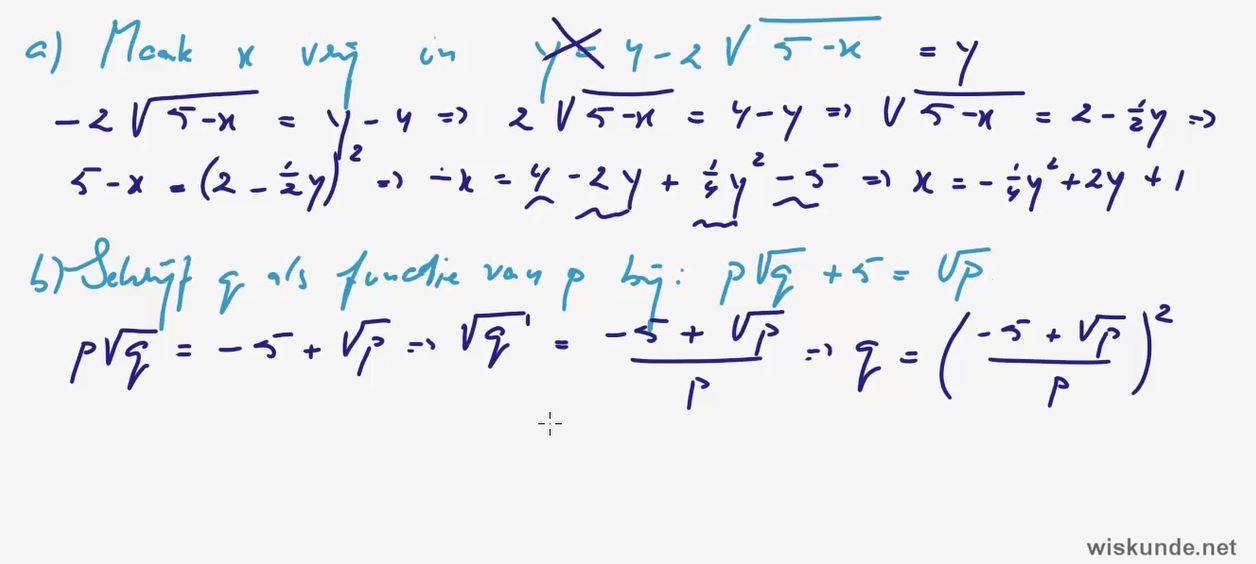 a) Maak x vrij in y = 4 - 2√(5-x) = y
-2√(5-x) = y - 4 => 2√(5-x) = 4 - y => √(5-x) = 2 - ½y =>
5 - x = (2 - ½y)² => -x = 4 - 2y + ¼y² - 5 => x = -¼y² + 2y + 1
b) Schrijf q als functie van p bij: p√q + 5 = √p
p√q = -5 + √p => √q = (-5 + √p)/p => q = ((-5 + √p)/p)²
wiskunde.net